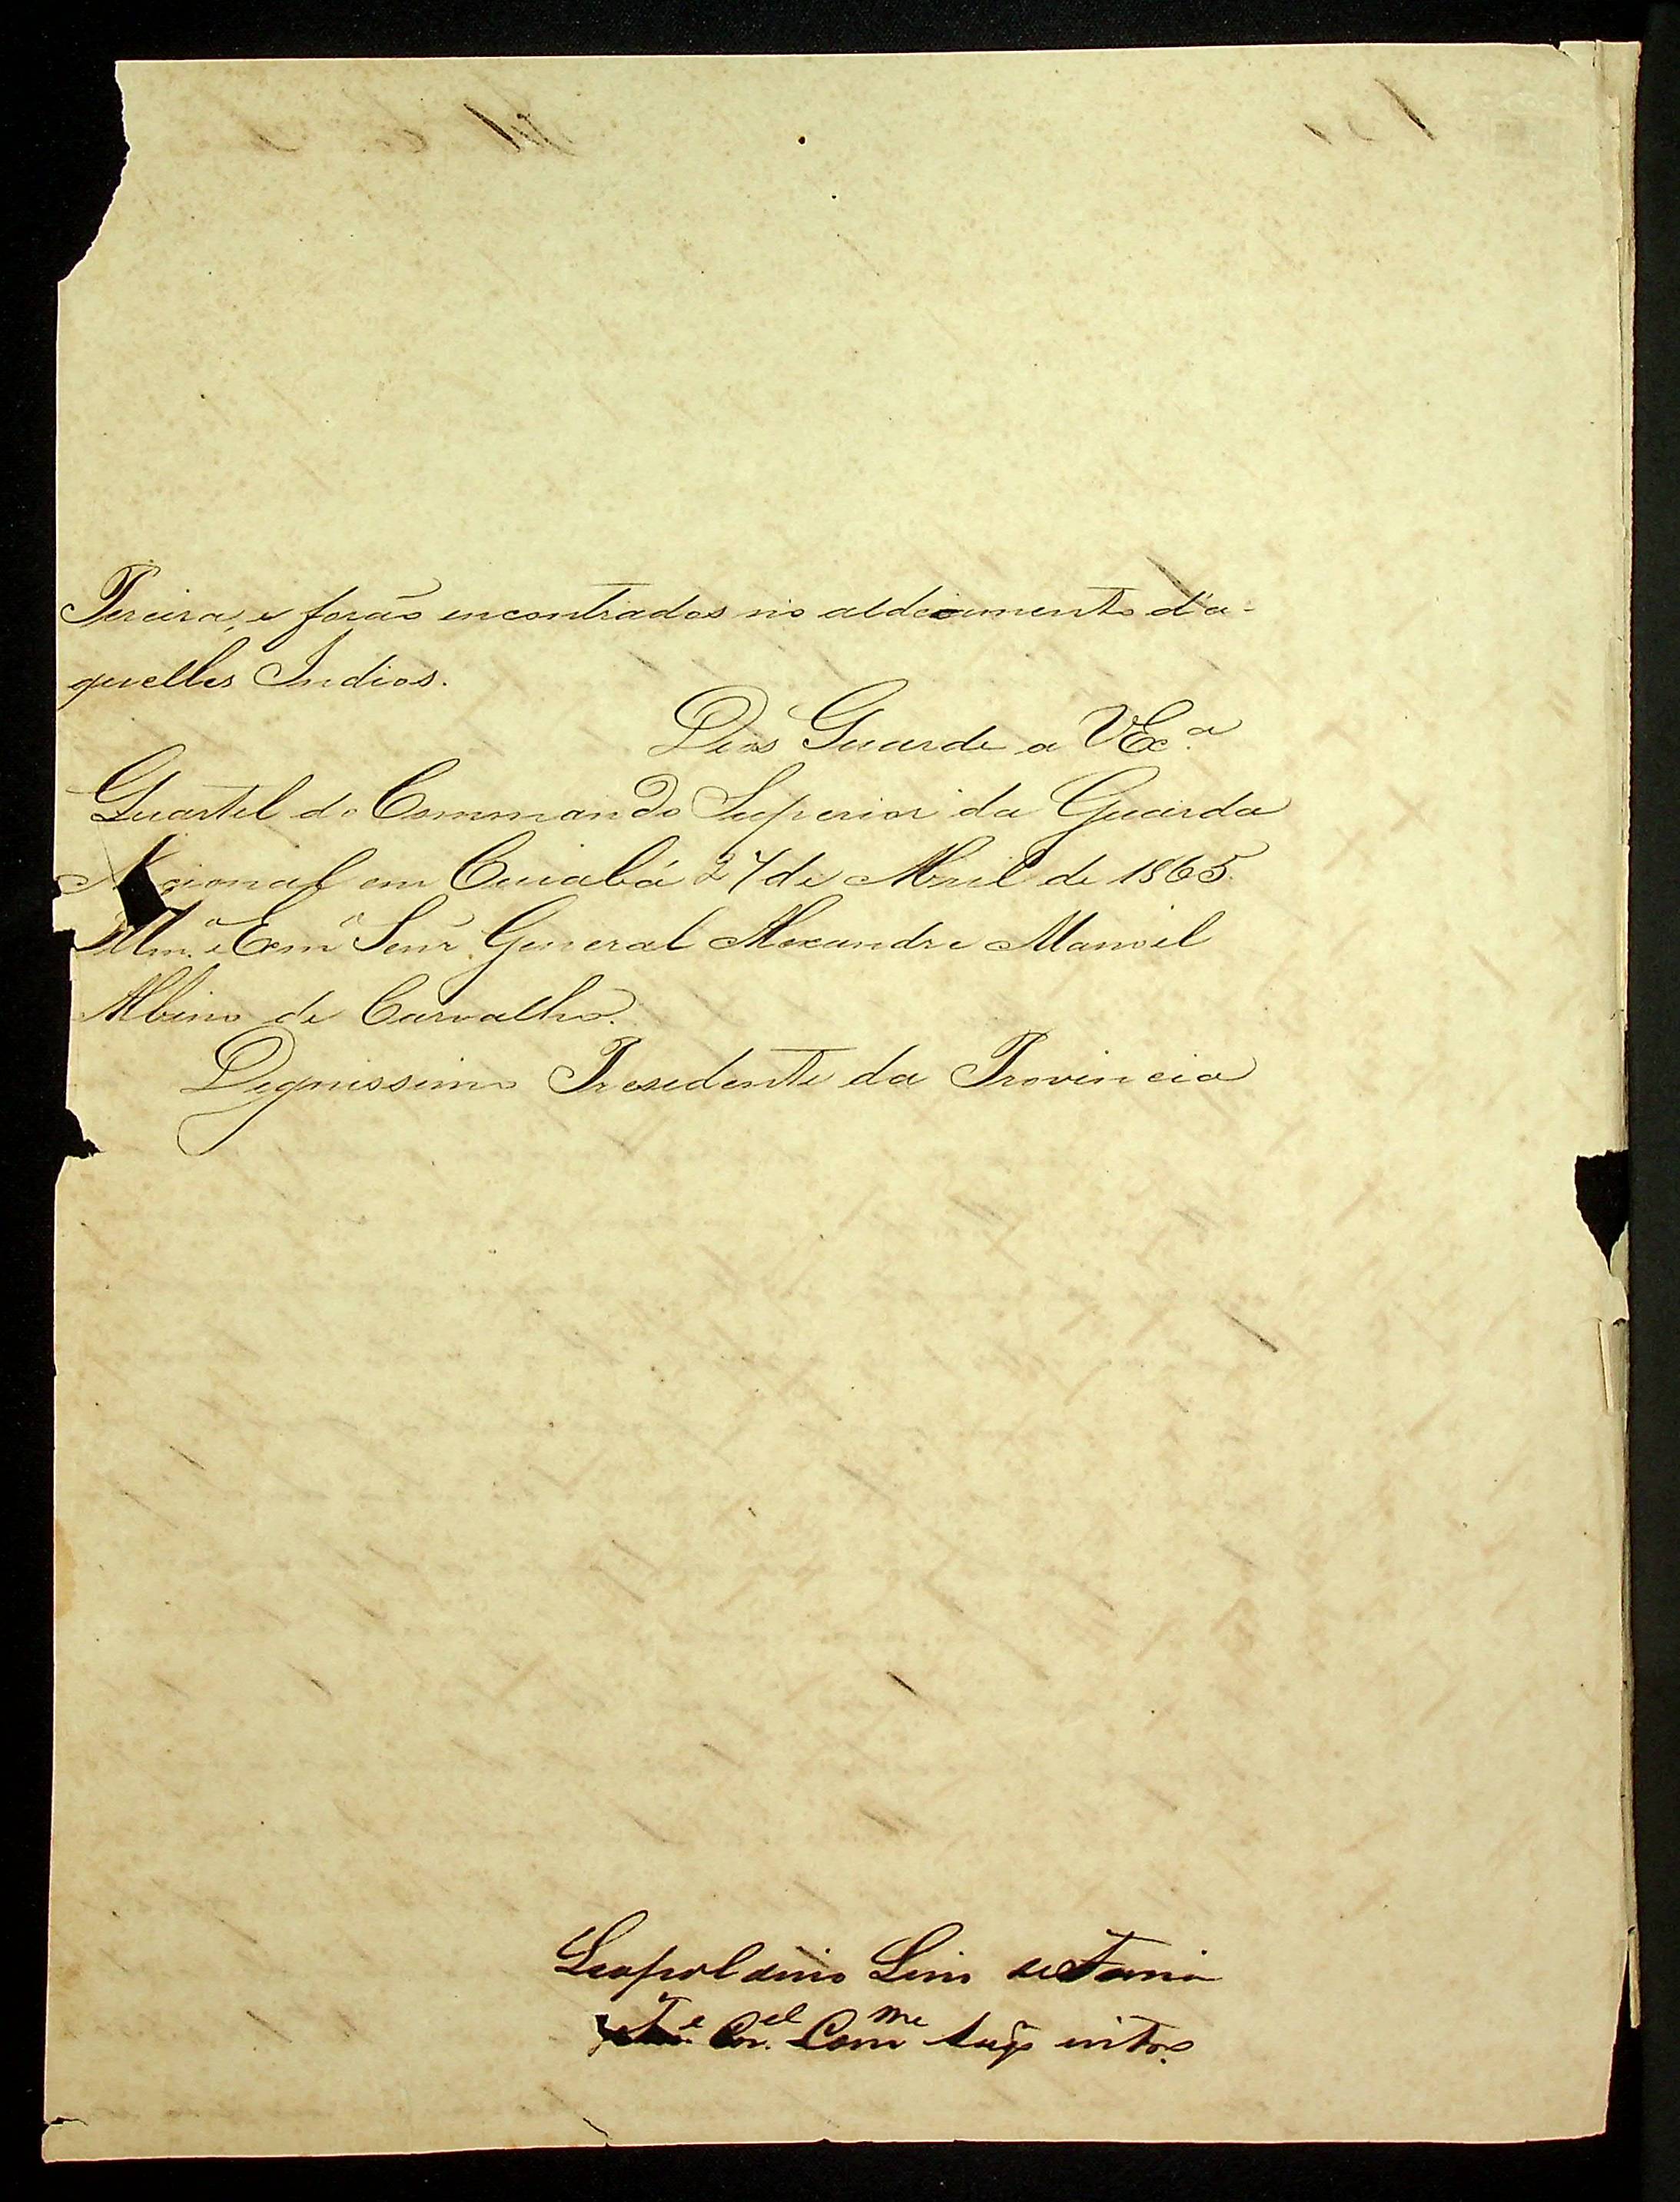 Pereira, e forão encontrados no aldeiamento d'a-
quelles Indios.
Deos Guarde a VEx.ª
Quartel do Commando Superior da Guarda
Nacional em Cuiabá 27 de Abril de 1865.
Illm.º e Exmº Senr. General Alexandre Manoel
Albino de Carvalho.
Dignissimo Presidente da Provincia
Leopoldino Lino de Faria
Te. Cor.el Comme Supr intº